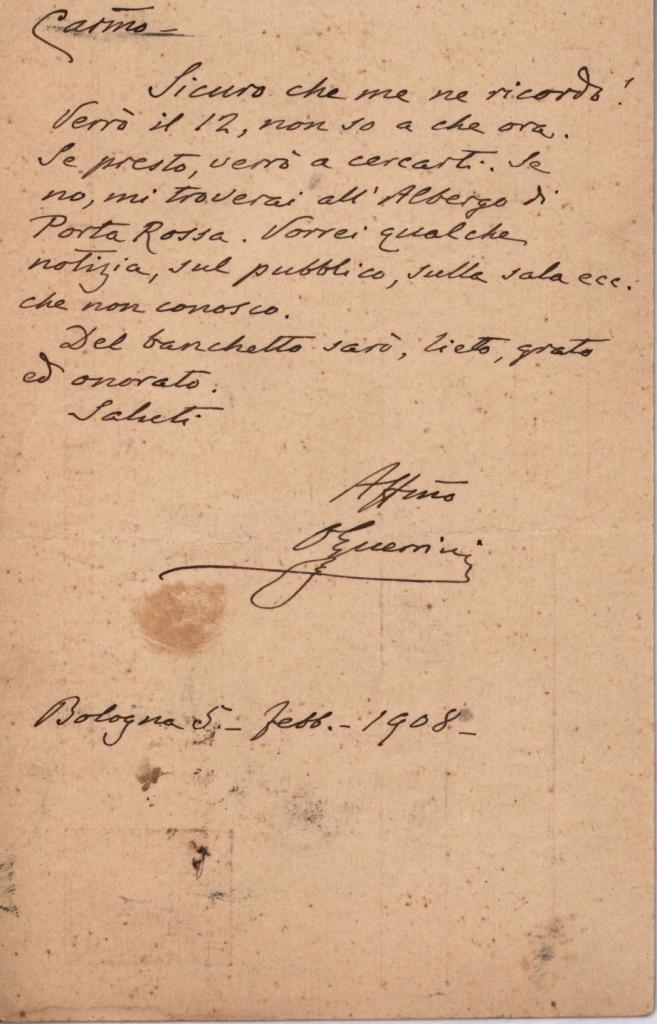 Carmo -
Sicuro che me ne ricordo!
Verrò il 12, non so a che ora.
Se presto, verrò a cercarti. Se
no, mi troverai all'Albergo di
Porta Rossa. Vorrei qualche
notizia, sul pubblico, sulla sala ecc.
che non conosco.
Del banchetto sarò, lieto, grato
ed onorato.
Saluti
Affmo
OGuerrini
Bologna 5 - febb. - 1908 -